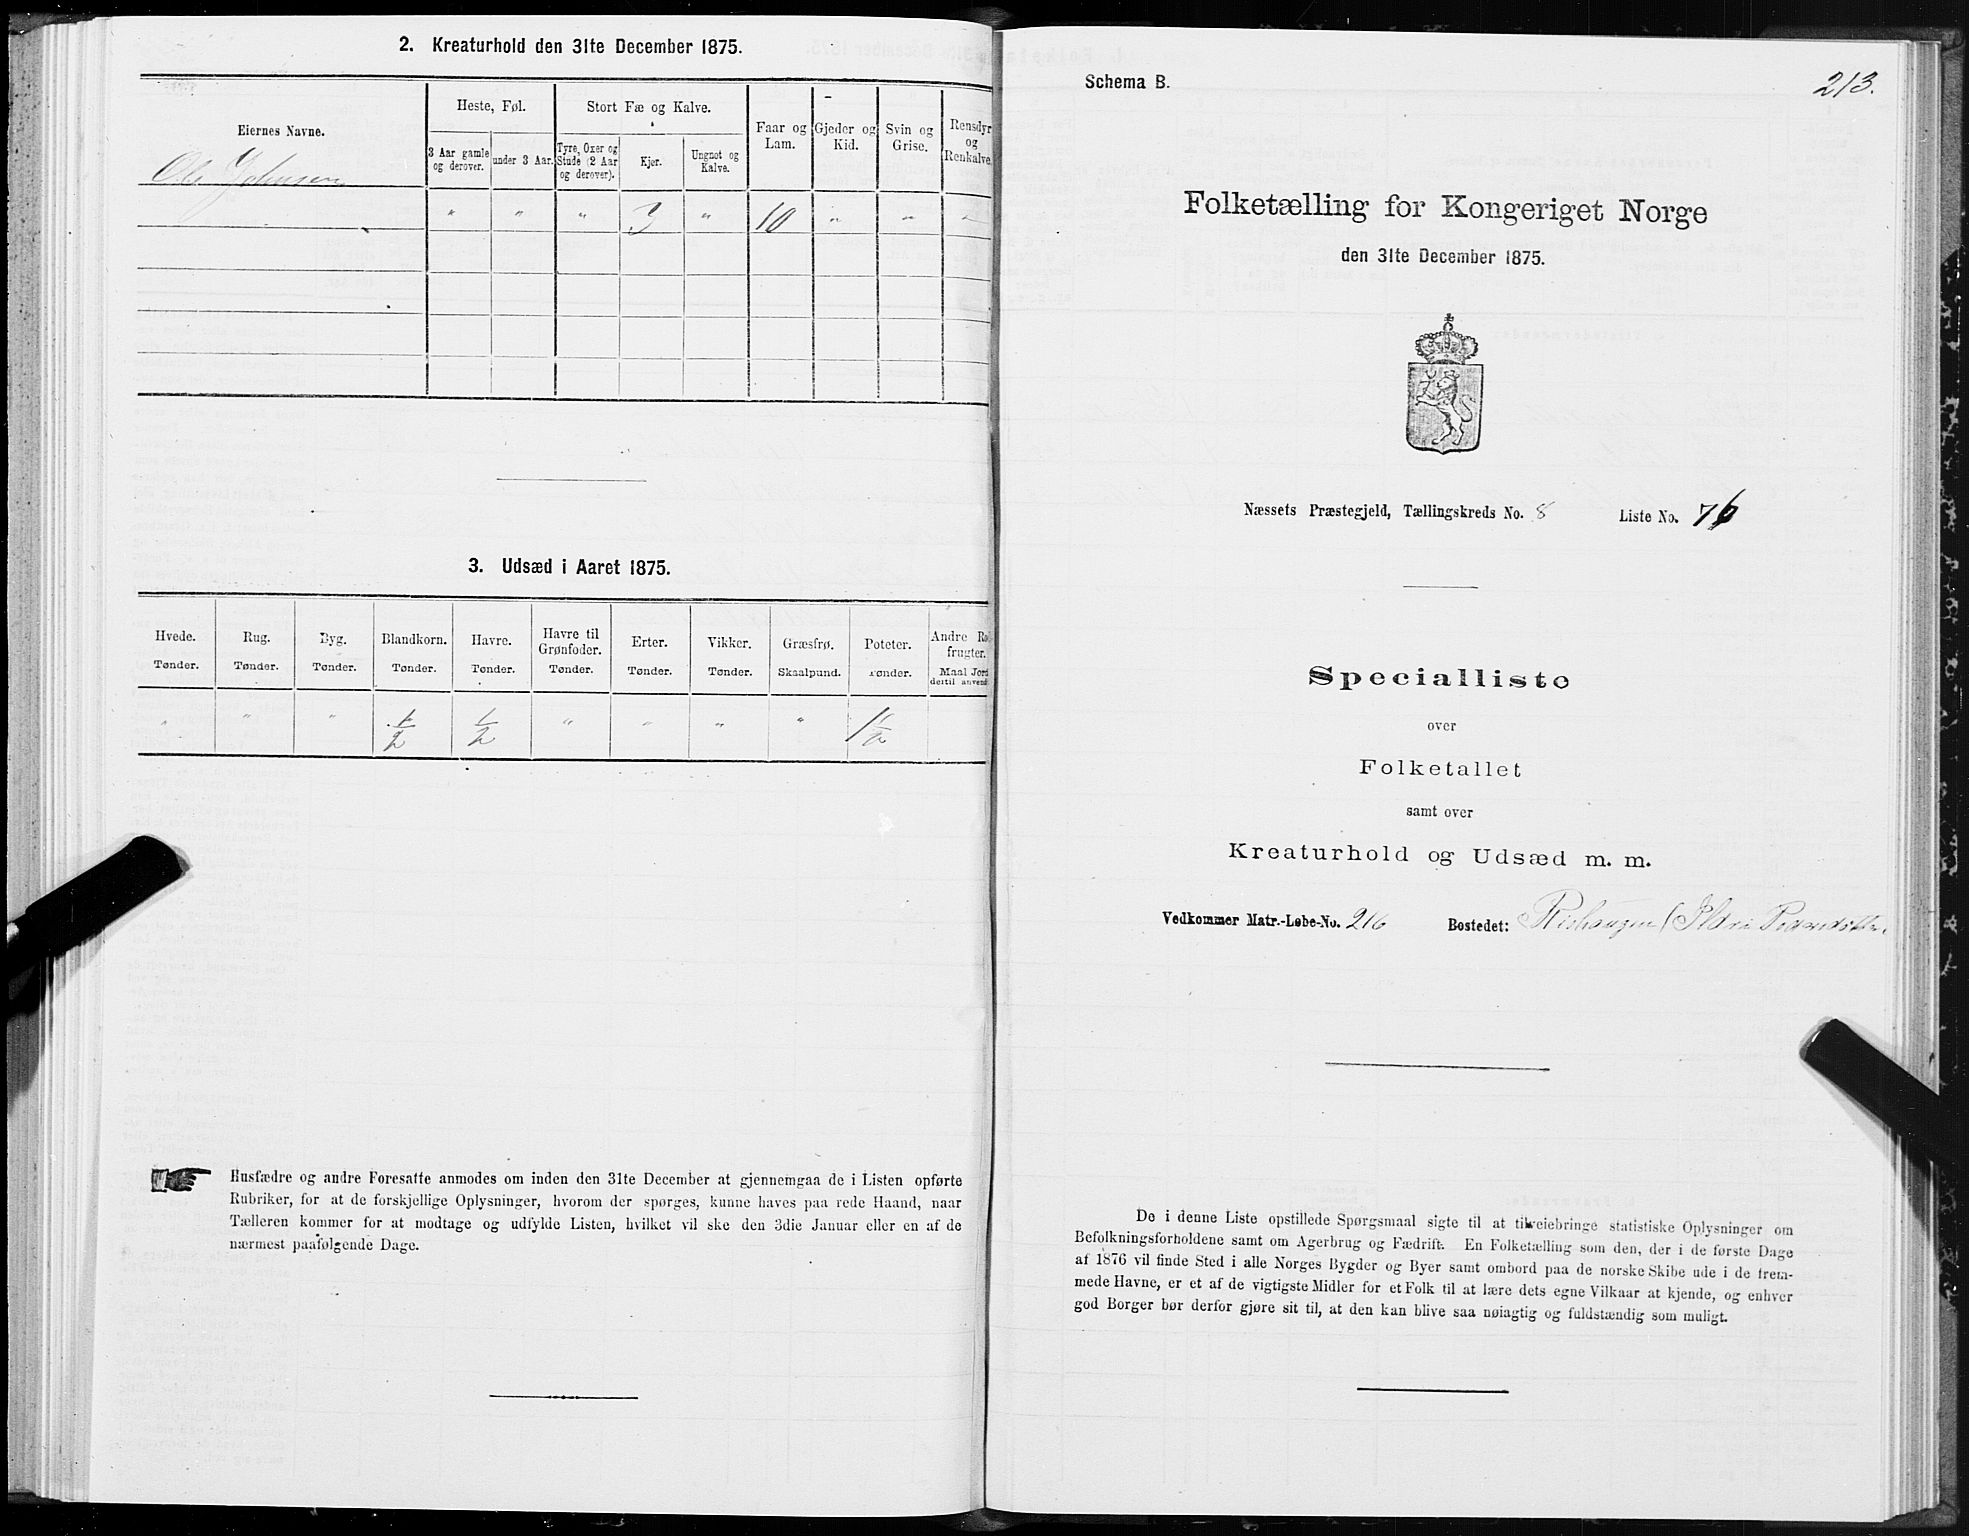 2. Kreaturhold den 31te December 1875.
Eiernes Navne.
Heste, Føl.
Stort Fæ og Kalve.
Faar og Lam.
Gjeder og Kid.
Svin og Grise.
Rensdyr og Renkalve.
3 Aar gamle og derover.
under 3 Aar.
Tyre, Oxer og Stude (2 Aar og derover).
Kjør.
Ungnøt og Kalve.
Ole Johnsen
" " " 3 " 10 " " "
3. Udsæd i Aaret 1875.
Hvede. Rug. Byg. Blandkorn. Havre. Havre til Grønfoder. Erter. Vikker. Græsfrø. Poteter. Andre Rodfrugter.
Tønder. Tønder. Tønder. Tønder. Tønder. Tønder. Tønder. Tønder. Skaalpund. Tønder. Maal Jord dertil anvendt
" " " 1/2 1/2 " " " " 1 1/2
Husfædre og andre Foresatte anmodes om inden den 31te December at gjennemgaa de i Listen opførte
Rubriker, for at de forskjellige Oplysninger, hvorom der spørges, kunne haves paa rede Haand, naar
Tælleren kommer for at modtage og udfylde Listen, hvilket vil ske den 3die Januar eller en af de
nærmest paafølgende Dage.
Schema B.
213.
Folketælling for Kongeriget Norge
den 31te December 1875.
Næssets Præstegjeld, Tællingskreds No. 8 Liste No. 76
Specialliste
over
Folketallet
samt over
Kreaturhold og Udsæd m. m.
Vedkommer Matr.-Løbe-No. 216 Bostedet: Rishaugen (Ildri Pedersdatter.
De i denne Liste opstillede Spørgsmaal sigte til at tilveiebringe statistiske Oplysninger om
Befolkningsforholdene samt om Agerbrug og Fædrift. En Folketælling som den, der i de første Dage
af 1876 vil finde Sted i alle Norges Bygder og Byer samt ombord paa de norske Skibe ude i de frem-
mede Havne, er et af de vigtigste Midler for et Folk til at lære dets egne Vilkaar at kjende, og enhver
god Borger bør derfor gjøre sit til, at den kan blive saa nøiagtig og fuldstændig som muligt.